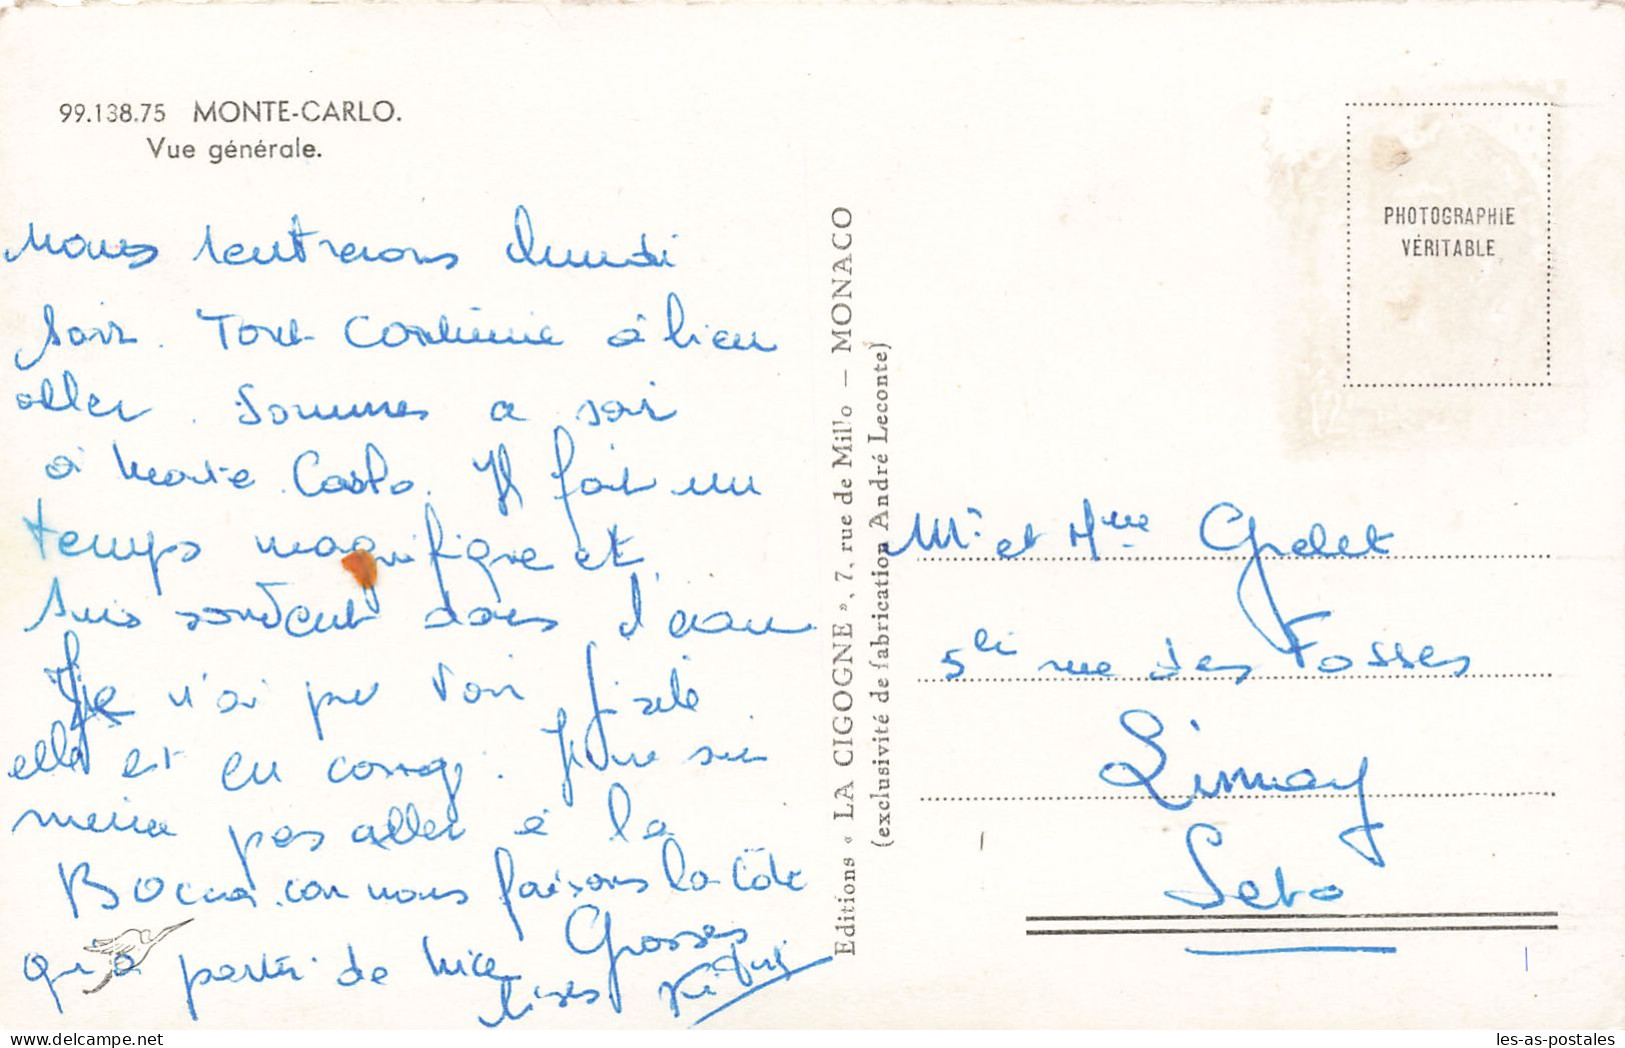 99.138.75 MONTE-CARLO.
Vue générale.
Nous rentrerons lundi
soir. Tout continue à bien
aller. Sommes ce soir
à Monte Carlo. Il fait un
temps magnifique et
suis souvent dans l'eau
Je n'ai pu voir Gisèle
elle est en congé. J'irai
pas aller à la
Bocca car nous faisons la Côte
qu'à partir de Nice Grosses
bises
Editions « LA CIGOGNE », 7, rue de Millo — MONACO
(exclusivité de fabrication André Leconte)
PHOTOGRAPHIE
VÉRITABLE
Mr et Mme
5 rue des Fosses
Limay
les-as-postales